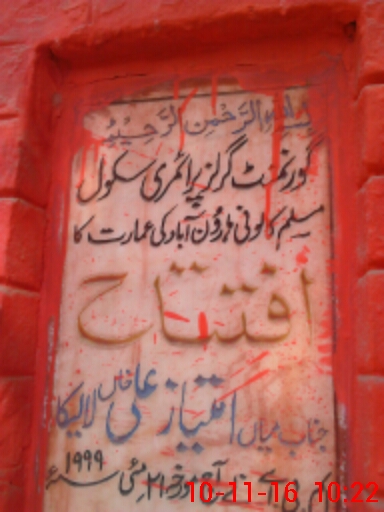 بسم اللہ الرحمن الرحیم
گورنمنٹ گرلز پرائمری سکول
مسلم کالونی ہارون آباد کی عمارت کا
افتتاح
جناب میاں امتیاز علی خاں لالیکا
ایم پی اے نے آج مورخہ ۲۱ مئی سنہ ۱۹۹۹ء
10-11-16 10:22